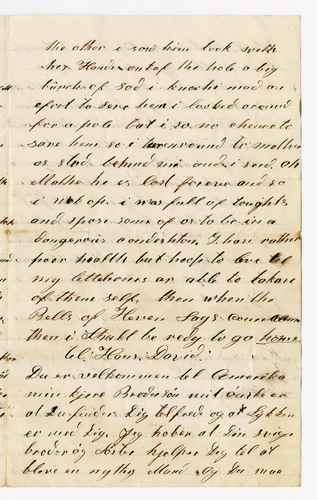 the other i saw him took with
her Hands out of the hole a big
bunch of sod i know hi mad an
efort to save hem i looked around
for a pole but i so no chence to
save hem so i turn round to mother
as stod behind mi and i said Oh
Mother he is lost forever and so
i vok op. i was full of tought
and spon som of os to be in a
dangerous condishton I have rather
poor health but hoep to live tel
my litlebones ar able to takare
of them self, then when the
Bells of Heven Says come
then i Shall be redy to go home
tel Hour David.
Du er velkommen tel Amerika
min kjere Brodersøn mit ønske er
at Du finder Dig tilfreds og at Lykken
er med Dig. Jeg haber at Din sviger
broder og Søster hjelper Dig til at
blive en nyttig Mand, og Du maa